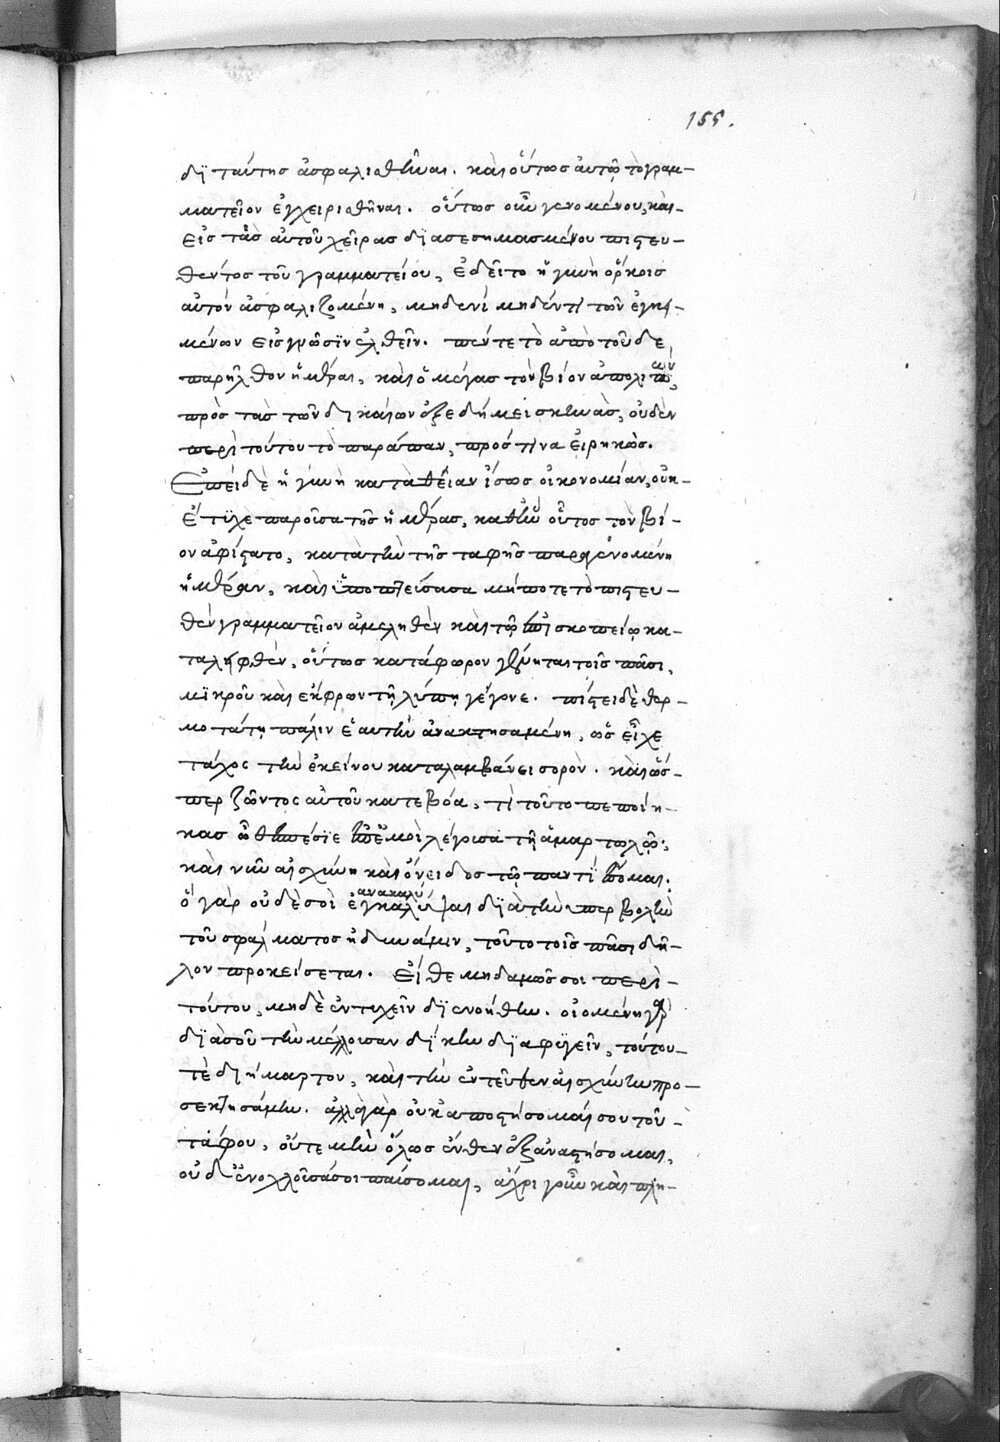 155.
δϊ ταύτης ἀσφαλισθῆναι. καὶ οὕτως αὐτῷ τὸ γραμ-
ματεῖον ἐγχειρισθῆναι. οὕτως οὖν γενομένου, καὶ
εἰς τὰς αὐτοῦ χεῖρας δϊασεσημασμένου πιστευ-
θέντος τοῦ γραμματείου, ἐδεῖτο ἡ γυνὴ ὅρκοις
αὐτὸν ἀσφαλιζομένη, μηδενί μηδέν τι τῶν ἐγγε-
μένων εἰς γνῶσϊν ἐλθεῖν. πέντε τὸ ἀπὸ τοῦδε
παρῆλθον ἡμέραι, καὶ ὁ μέγας τὸν βίον ἀπολιπὼν
πρὸς τὰς τῶν δικαίων ἐξεδήμει σκηνὰς, οὐδὲν
περὶ τούτου τὸ παράπαν, πρός τινα εἰρηκώς.
Ἐπεὶ δὲ ἡ γυνὴ κατὰ θείαν ἴσως οἰκονομίαν, οὐκ
ἔτϋχε παροῦσα τῆς ἡμέρας, καθ' ἣν οὗτος τὸν βί-
ον ἀφίστατο, κατὰ τὴν τῆς ταφῆς παραγενομένη
ἡμέραν, καὶ ὑποπτεύσασα μήποτε τὸ πιστευ-
θὲν γραμματεῖον ἀμεληθὲν καὶ τῷ ἐπισκοπείῳ κα-
ταληφθὲν, οὕτως κατάφωρον γένηται τοῖς πᾶσι,
μϊκροῦ καὶ ἔκφρων τῇ λύπῃ γέγονε. πίστει δὲ θερ-
μοτάτῃ πάλιν ἑαυτὴν ἀνακτησαμένη, ὡς εἶχε
τάχος τὴν ἐκείνου καταλαμβάνει σορὸν. καὶ ὥσ-
περ ζῶντος αὐτοῦ κατεβόα, τί τοῦτο πεποίη-
κας ὦ θεσπέσϊε ἐπ' ἐμοὶ λέγουσα τῇ ἁμαρτωλῷ;
καὶ νῦν αἰσχύνη καὶ ὄνειδος τῷ παντὶ ἔσομαι;
ὃ γὰρ οὐδὲ σοὶ ἐγκαλύψαι δϊὰ τὴν ὑπερβολὴν
ἀνακαλύ
τοῦ σφάλματος ἠδυνάμην, τοῦτο τοῖς πᾶσι δῆ-
λον προκείσεται. Εἴθε μηδαμῶς σοι περὶ
τούτου, μηδὲ ἐντυχεῖν δϊενοήθην. οἰομένη γὰρ
δϊὰ σοῦ τὴν μέλλουσαν δίκην δϊαφϋγεῖν, τούτου
τὲ διήμαρτον, καὶ τὴν ἐντεῦθεν αἰσχύνην προ-
σεκτησάμην. ἀλλὰ γὰρ οὐκ ἀποστήσομαί σου τοῦ
τάφου, οὔτε μὴν ὅλως ἔνθεν ἐξαναστήσομαι,
οὐδ' ἐνοχλοῦσά σοι παύσομαι, ἄχρι γοῦν καὶ πλη-